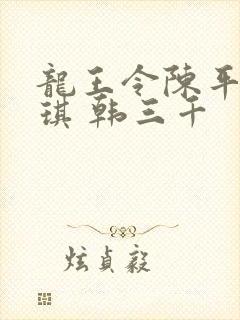 龍王令陳平
琪 韩三千
炫貞毅